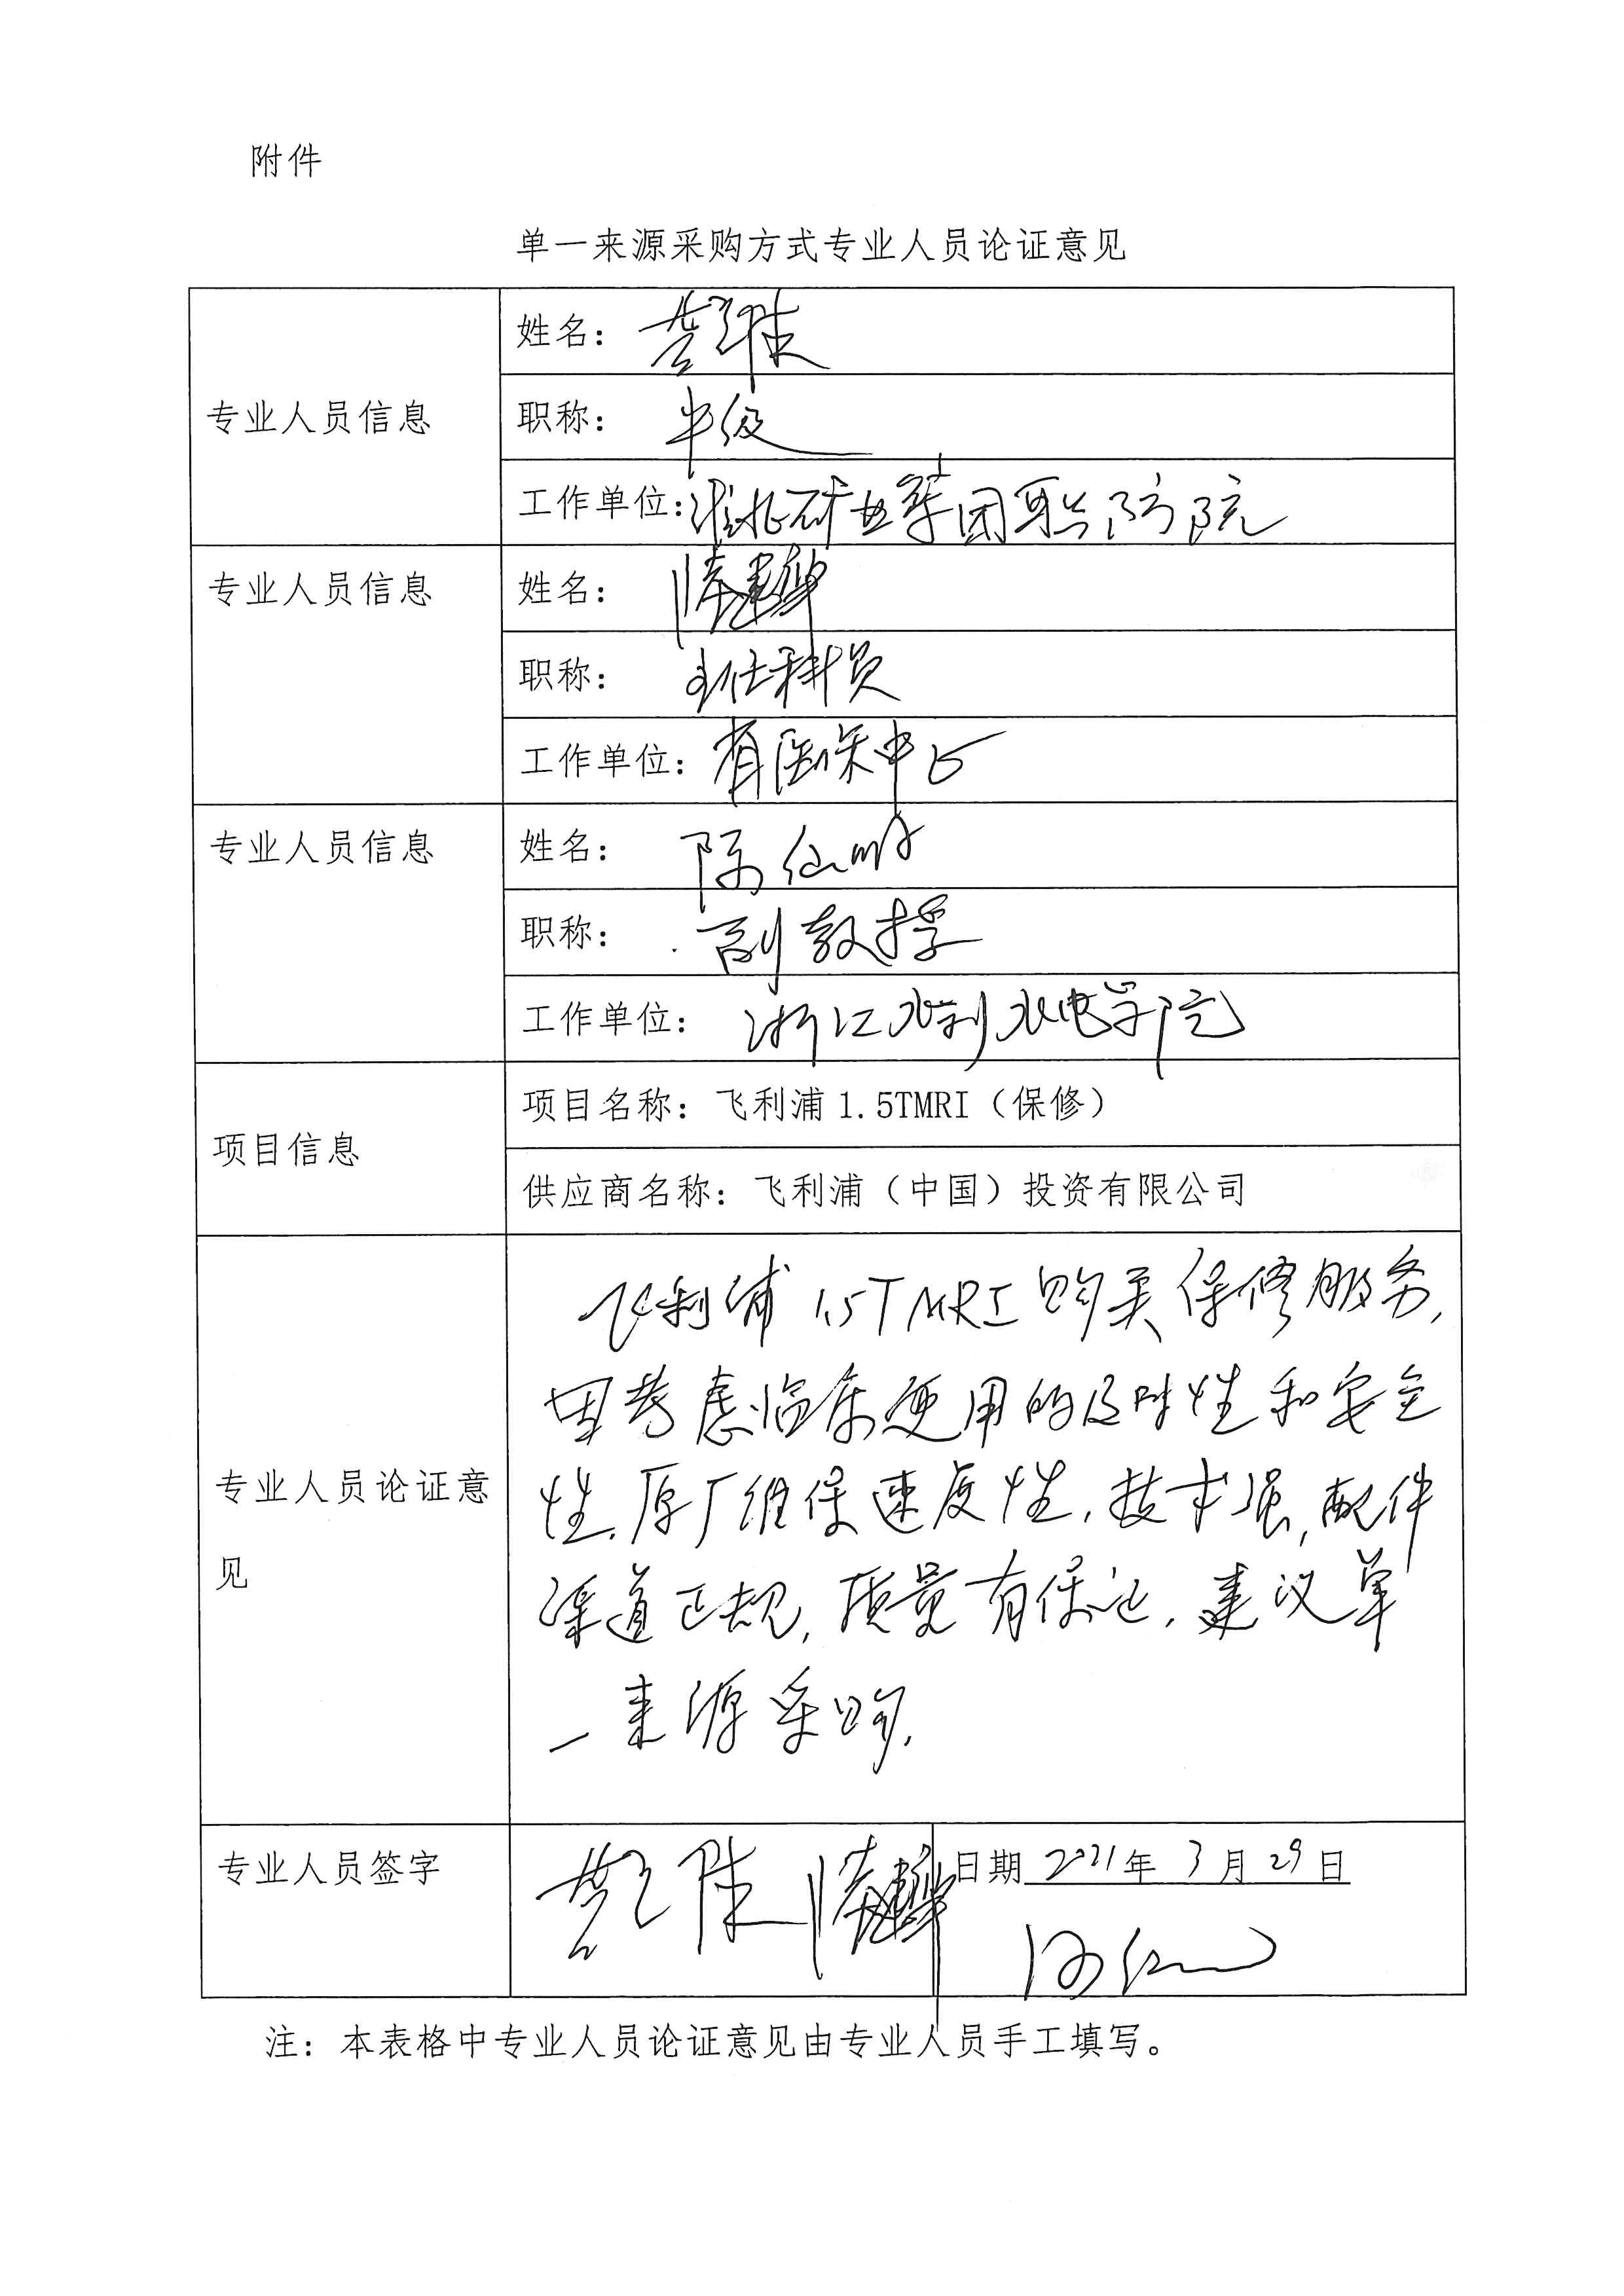 附件
单一来源采购方式专业人员论证意见
专业人员信息
姓名：
职称： 中级
工作单位：淮北矿业集团职防院
专业人员信息
姓名：
职称： 主任科员
工作单位：省医保中心
专业人员信息
姓名： 陈仙明
职称： 副教授
工作单位： 浙江水利水电学院
项目信息
项目名称：飞利浦1.5TMRI（保修）
供应商名称：飞利浦（中国）投资有限公司
专业人员论证意
见
飞利浦1.5TMRI购买保修服务，
因考虑临床使用的及时性和安全
性，原厂维保速度性，技术强，配件
渠道正规，质量有保证，建议单
一来源采购.
专业人员签字
日期 2021年 3月 29日
注：本表格中专业人员论证意见由专业人员手工填写。